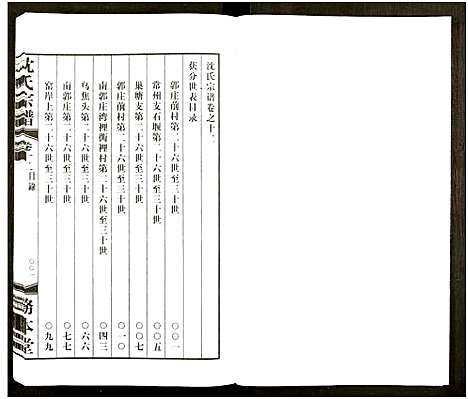 沈氏宗谱卷之十二
茯分世表目录
郭庄前村第二十六世至三十世 〇〇一
常州支石堰第二十六世至三十世 〇〇五
巢塘支第二十六世至三十世 〇〇七
郭庄前村第二十六世至三十世 〇一〇
南郭庄湾裡衖裡村第二十六世至三十世 〇四三
乌焦头第二十六世至三十世 〇六六
南郭庄第二十六世至三十世 〇七七
窑岸上第二十六世至三十世 〇九九
沈氏宗谱
卷十二 目録
〇〇一
本堂